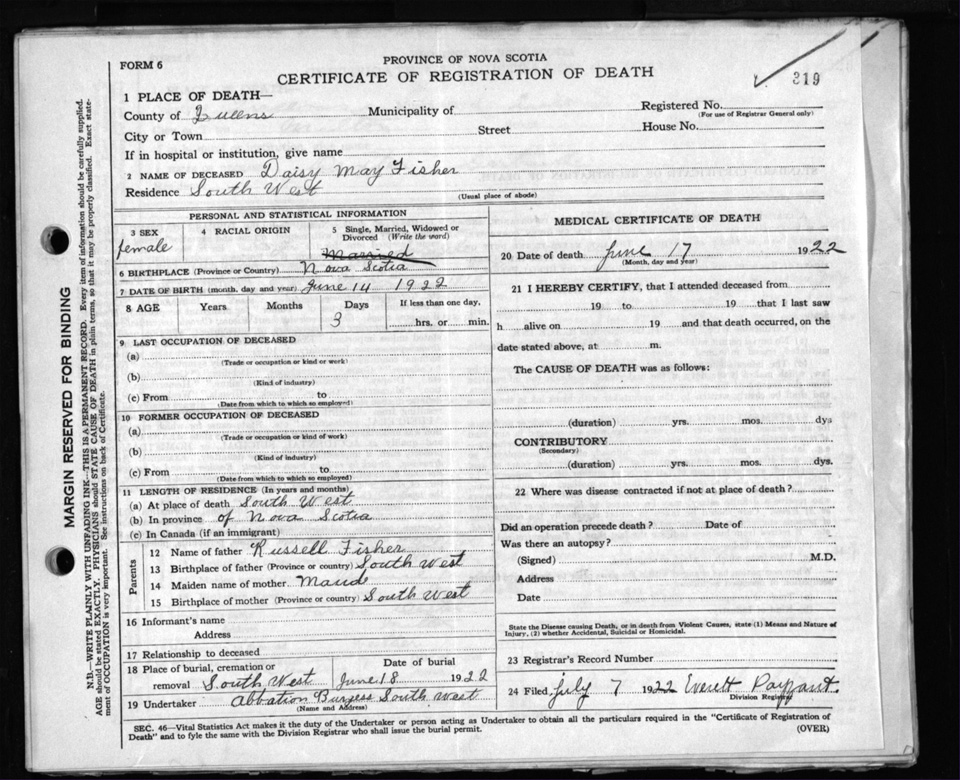 FORM 6
PROVINCE OF NOVA SCOTIA
CERTIFICATE OF REGISTRATION OF DEATH
319
1 PLACE OF DEATH—
County of Queens Municipality of Registered No.
(For use of Registrar General only)
City or Town Street House No.
If in hospital or institution, give name
2 NAME OF DECEASED Daisy May Fisher
Residence South West
(Usual place of abode)
PERSONAL AND STATISTICAL INFORMATION
3 SEX 4 RACIAL ORIGIN 5 Single, Married, Widowed or
Divorced (Write the word)
female Married
6 BIRTHPLACE (Province or Country) Nova Scotia
7 DATE OF BIRTH (month, day and year) June 14 1922
8 AGE Years Months Days If less than one day,
3 hrs. or min.
9 LAST OCCUPATION OF DECEASED
(a)
(Trade or occupation or kind or work)
(b)
(Kind of industry)
(c) From to
(Date from which to which so employed)
10 FORMER OCCUPATION OF DECEASED
(a)
(Trade or occupation or kind of work)
(b)
(Kind of industry)
(c) From to
(Date from which to which so employed)
11 LENGTH OF RESIDENCE (In years and months)
(a) At place of death South West
(b) In province of Nova Scotia
(c) In Canada (if an immigrant)
Parents
12 Name of father Russell Fisher
13 Birthplace of father (Province or country) South West
14 Maiden name of mother Maud
15 Birthplace of mother (Province or country) South West
16 Informant's name
Address
17 Relationship to deceased
18 Place of burial, cremation or Date of burial
removal South West June 18 1922
19 Undertaker Burgess South West
(Name and Address)
MEDICAL CERTIFICATE OF DEATH
20 Date of death June 17 1922
(Month, day and year)
21 I HEREBY CERTIFY, that I attended deceased from
19 to 19 that I last saw
h alive on 19 and that death occurred, on the
date stated above, at m.
The CAUSE OF DEATH was as follows:
(duration) yrs. mos. dys
CONTRIBUTORY
(Secondary)
(duration) yrs. mos. dys.
22 Where was disease contracted if not at place of death?
Did an operation precede death? Date of
Was there an autopsy?
(Signed) M.D.
Address
Date
State the Disease causing Death, or in death from Violent Causes, state (1) Means and Nature of
Injury, (2) whether Accidental, Suicidal or Homicidal.
23 Registrar's Record Number
24 Filed July 7 1922 Everett Payzant.
Division Registrar
SEC. 46—Vital Statistics Act makes it the duty of the Undertaker or person acting as Undertaker to obtain all the particulars required in the "Certificate of Registration of
Death" and to fyle the same with the Division Registrar who shall issue the burial permit.
(OVER)
MARGIN RESERVED FOR BINDING
N.B.—WRITE PLAINLY WITH UNFADING INK—THIS IS A PERMANENT RECORD. Every item of information should be carefully supplied.
AGE should be stated EXACTLY. PHYSICIANS should STATE CAUSE OF DEATH in plain terms, so that it may be properly classified. Exact state-
ment of OCCUPATION is very important. See instructions on back of Certificate.